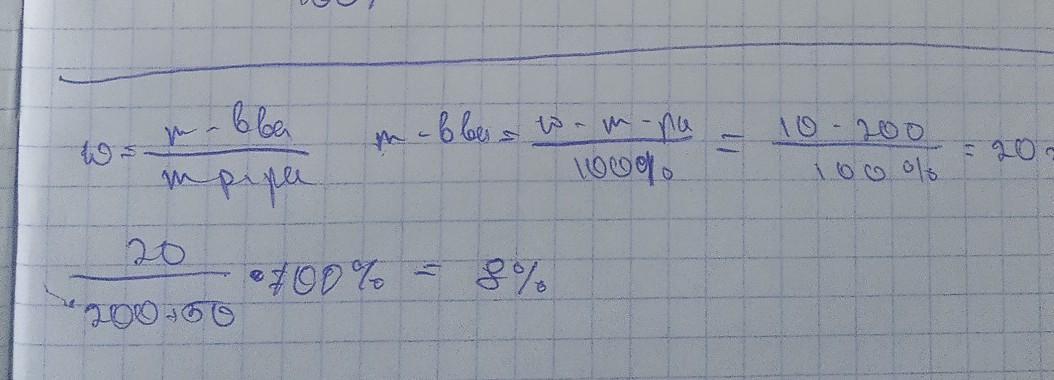 ω = m - вва / m р-ра m - вва = ω - m - ра / 100% = 10 - 200 / 100% = 20
20 / 200+50 • 100% = 8%